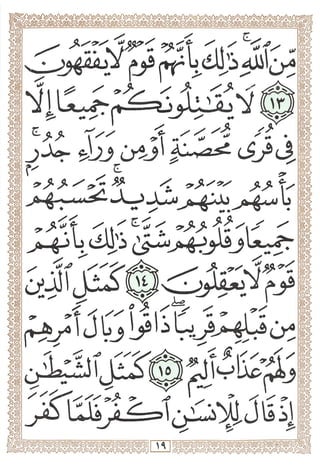 مِّنَ ٱللَّهِ ۚ ذَٰلِكَ بِأَنَّهُمْ قَوْمٌ لَّا يَفْقَهُونَ
١٣ لَا يُقَـٰتِلُونَكُمْ جَمِيعًا إِلَّا
فِى قُرًى مُّحَصَّنَةٍ أَوْ مِن وَرَآءِ جُدُرٍۭ ۚ
بَأْسُهُم بَيْنَهُمْ شَدِيدٌ ۚ تَحْسَبُهُمْ
جَمِيعًا وَقُلُوبُهُمْ شَتَّىٰ ۚ ذَٰلِكَ بِأَنَّهُمْ
قَوْمٌ لَّا يَعْقِلُونَ ١٤ كَمَثَلِ ٱلَّذِينَ
مِن قَبْلِهِمْ قَرِيبًا ۖ ذَاقُوا۟ وَبَالَ أَمْرِهِمْ
وَلَهُمْ عَذَابٌ أَلِيمٌ ١٥ كَمَثَلِ ٱلشَّيْطَـٰنِ
إِذْ قَالَ لِلْإِنسَـٰنِ ٱكْفُرْ فَلَمَّا كَفَرَ
١٩